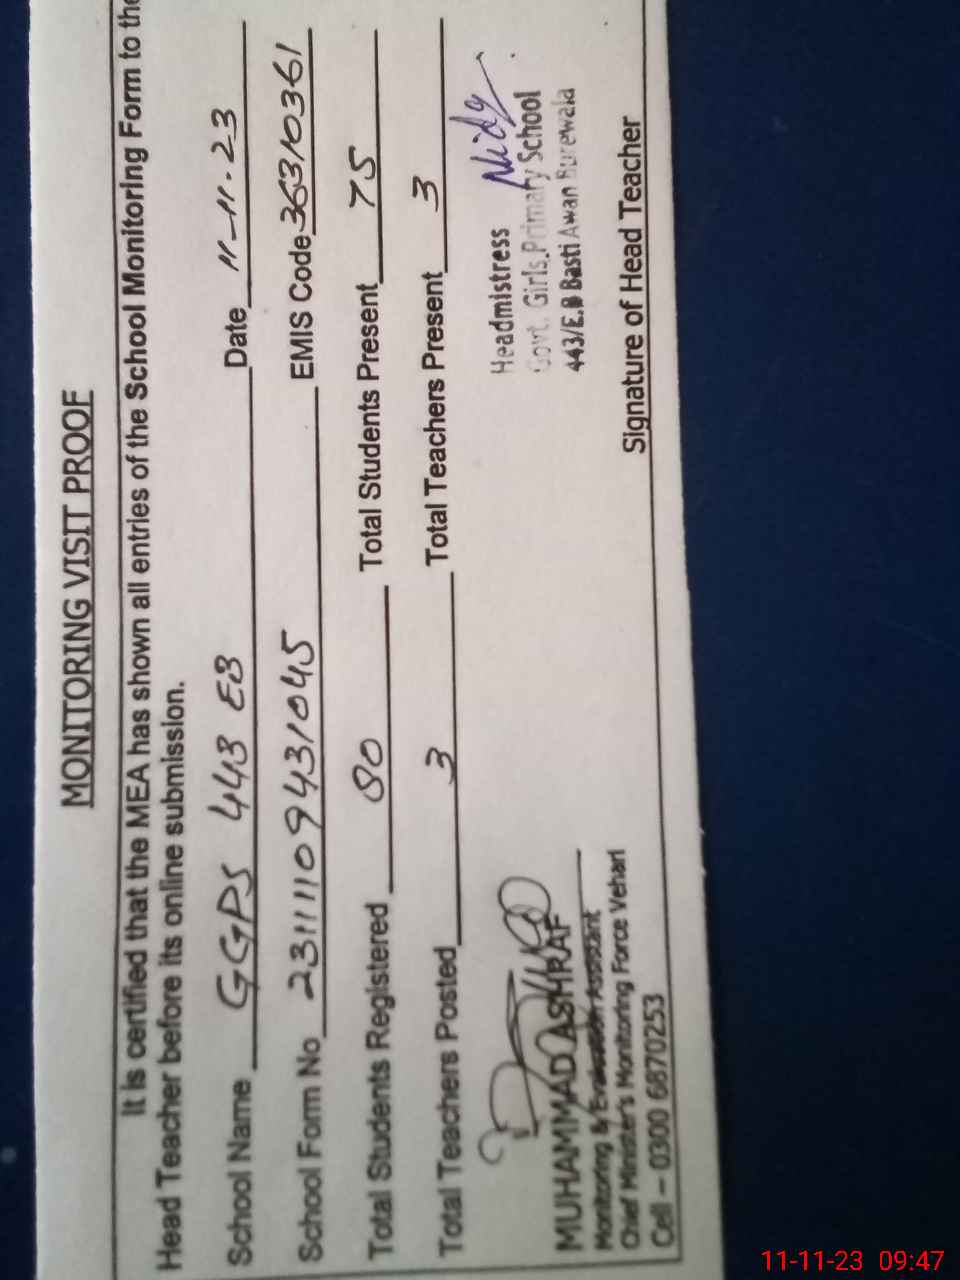 MONITORING VISIT PROOF
It is certified that the MEA has shown all entries of the School Monitoring Form to the
Head Teacher before its online submission.
School Name GGPS 443 EB Date 11-11-23
School Form No 23111109431045 EMIS Code 36310361
Total Students Registered 80 Total Students Present 75
Total Teachers Posted 3 Total Teachers Present 3
Headmistress
Govt. Girls Primary School
443/E.B Basti Awan Burewala
MUHAMMAD ASHRAF
Monitoring & Evaluation Assistant
Chief Minister's Monitoring Force Vehari
Cell – 0300 6870253
Signature of Head Teacher
11-11-23 09:47